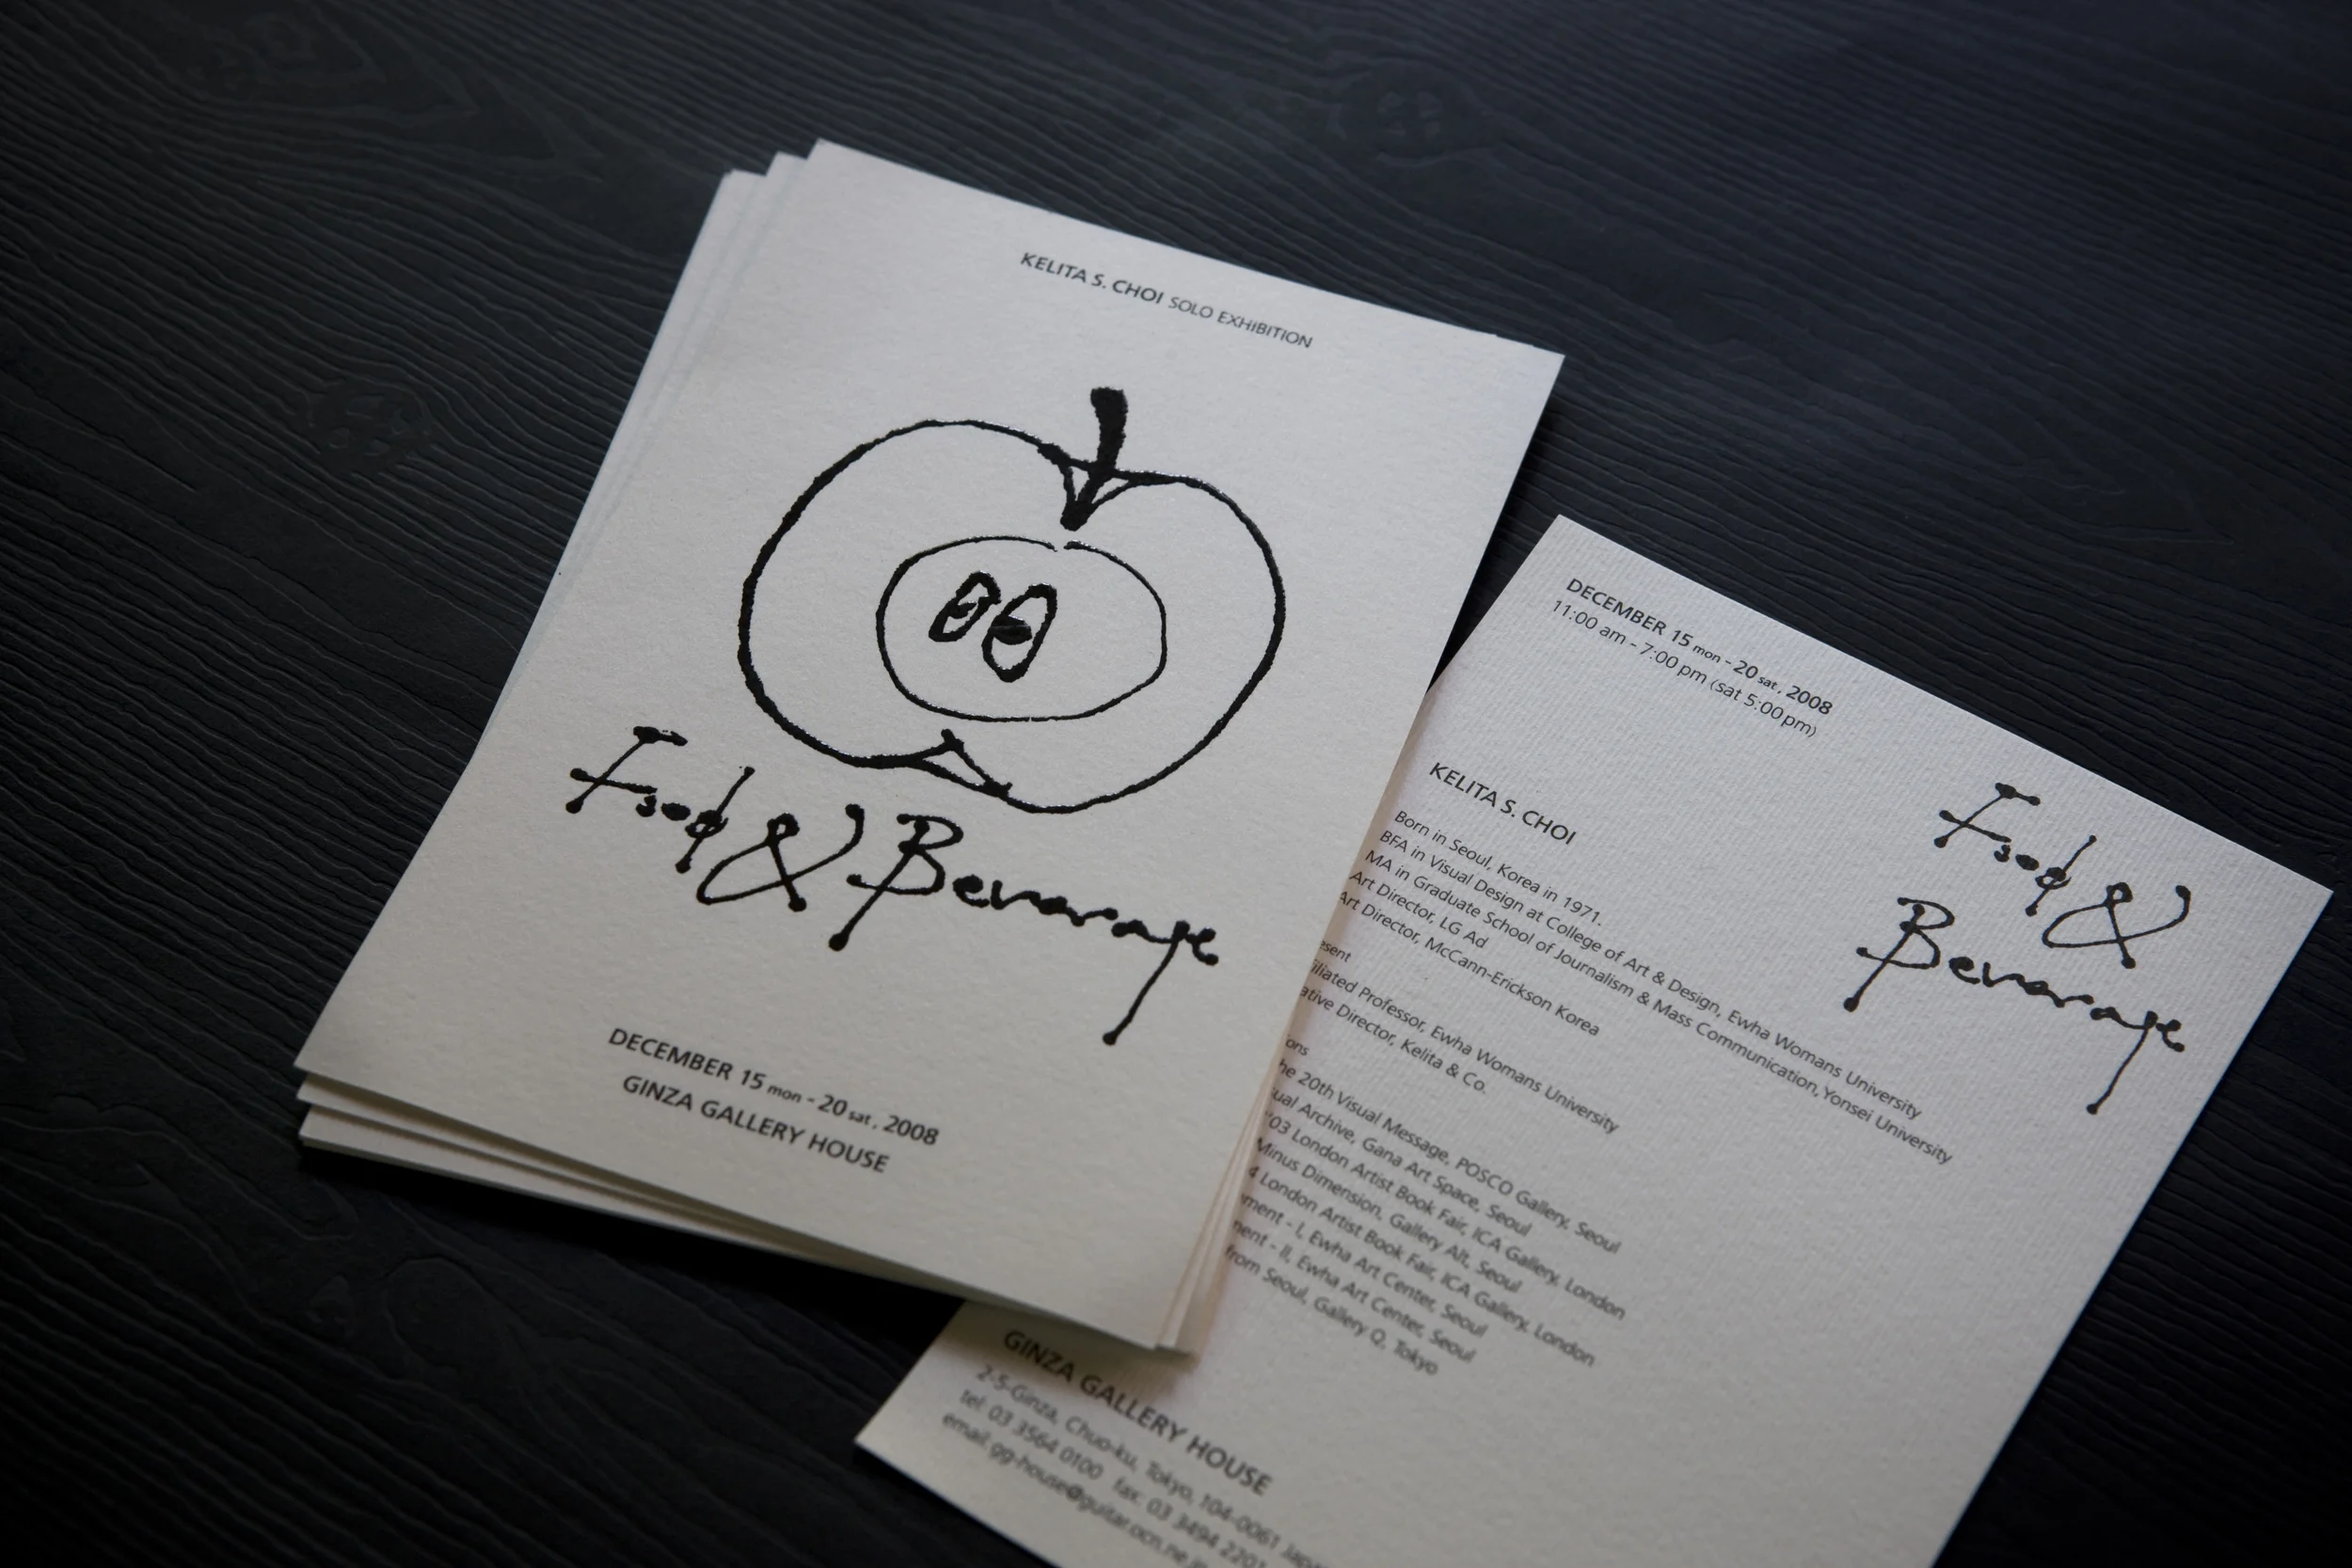 KELITA S. CHOI SOLO EXHIBITION
Food & Beverage
DECEMBER 15 mon - 20 sat, 2008
GINZA GALLERY HOUSE
DECEMBER 15 mon - 20 sat, 2008
11:00 am - 7:00 pm (sat 5:00 pm)
Food &
Beverage
KELITA S. CHOI
Born in Seoul, Korea in 1971.
BFA in Visual Design at College of Art & Design, Ewha Womans University
MA in Graduate School of Journalism & Mass Communication, Yonsei University
Art Director, LG Ad
Art Director, McCann-Erickson Korea
Professor, Ewha Womans University
Director, Kelita & Co.
20th Visual Message, POSCO Gallery, Seoul
Archive, Gana Art Space, Seoul
'03 London Artist Book Fair, ICA Gallery, London
Minus Dimension, Gallery Alt, Seoul
4 London Artist Book Fair, ICA Gallery, London
- I, Ewha Art Center, Seoul
- II, Ewha Art Center, Seoul
from Seoul, Gallery Q, Tokyo
GINZA GALLERY HOUSE
2-5-Ginza, Chuo-ku, Tokyo, 104-0061
tel: 03 3564 0100 fax: 03 3494 2201
email: gg-house@guitar.ocn.ne